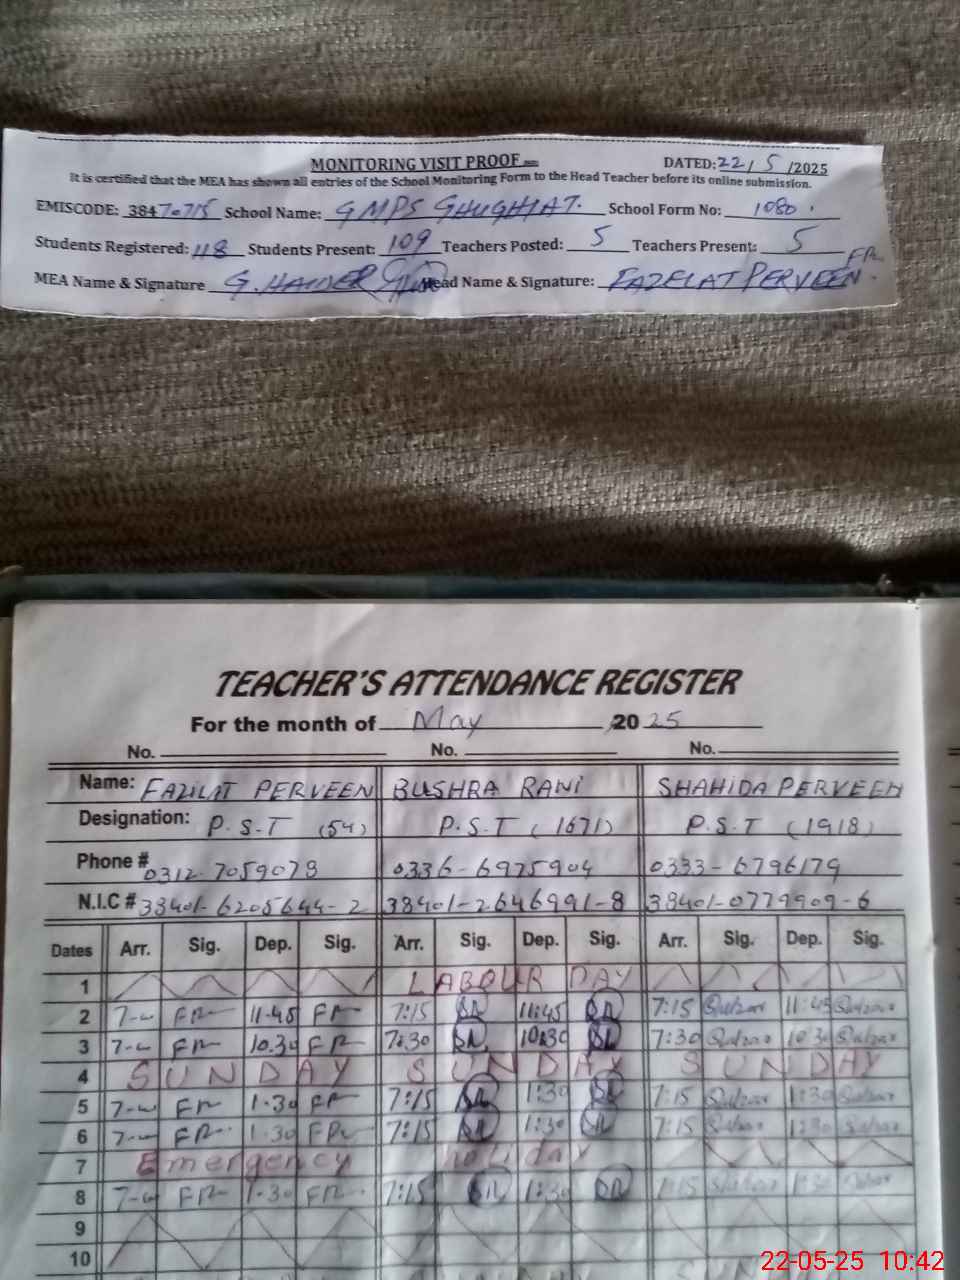 MONITORING VISIT PROOF DATED: 22/5/2025
It is certified that the MEA has shown all entries of the School Monitoring Form to the Head Teacher before its online submission.
EMISCODE: 38470715 School Name: GMPS GHUGHIAT. School Form No: 1080.
Students Registered: 118 Students Present: 109 Teachers Posted: 5 Teachers Present: 5
MEA Name & Signature G. HAIDER Head Name & Signature: FAZELAT PERVEEN.
TEACHER'S ATTENDANCE REGISTER
For the month of May 2025
No. No. No.
Name: FAZILAT PERVEEN BUSHRA RANI SHAHIDA PERVEEN
Designation: P.S.T (54) P.S.T (1671) P.S.T (1918)
Phone # 0312-7059078 0336-6975904 0333-6796179
N.I.C # 38401-6205644-2 38401-2646991-8 38401-0779909-6
Dates Arr. Sig. Dep. Sig. Arr. Sig. Dep. Sig. Arr. Sig. Dep. Sig.
1 LABOUR DAY
2 FR 11.45 FR 7:15 BR 11:45 BR 7:15 11:45
3 FR 10.30 FR 7:30 BR 10:30 BR 7:30 10:30
4 SUNDAY SUNDAY SUNDAY
5 FR 1.30 FR 7:15 BR 1:30 BR 7:15 1:30
6 FR 1.30 FR 7:15 BR 1:30 BR 7:15 1:30
7 Emergency holiday
8 FR 1.30 FR 7:15 BR 1:30 BR 7:15 1:30
9
10
22-05-25 10:42